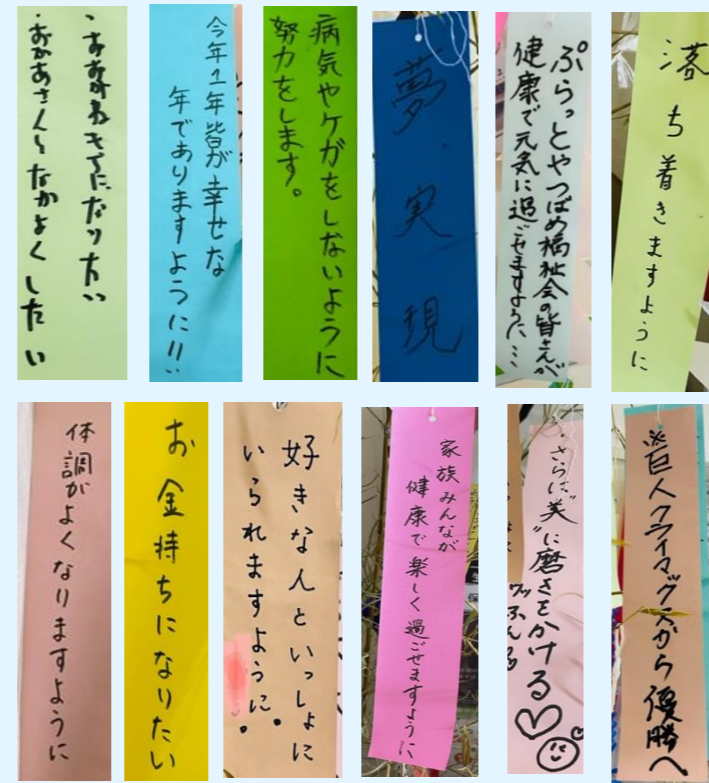 ・おおがねもちになりたい
・おかあさんとなかよくしたい
今年1年皆が幸せな
年でありますように!!
病気やケガをしないように
努力をします。
夢・実現
ぷらっとやつばめ福祉会の皆さんが
健康で元気に過ごせますように…
落ち着きますように
体調がよくなりますように
お金持ちになりたい
好きな人といっしょに
いられますように。
家族みんなが
健康で楽しく過ごせますように
さらに"美"に磨きをかける♡
ウッふん
巨人クライマックスから優勝へ